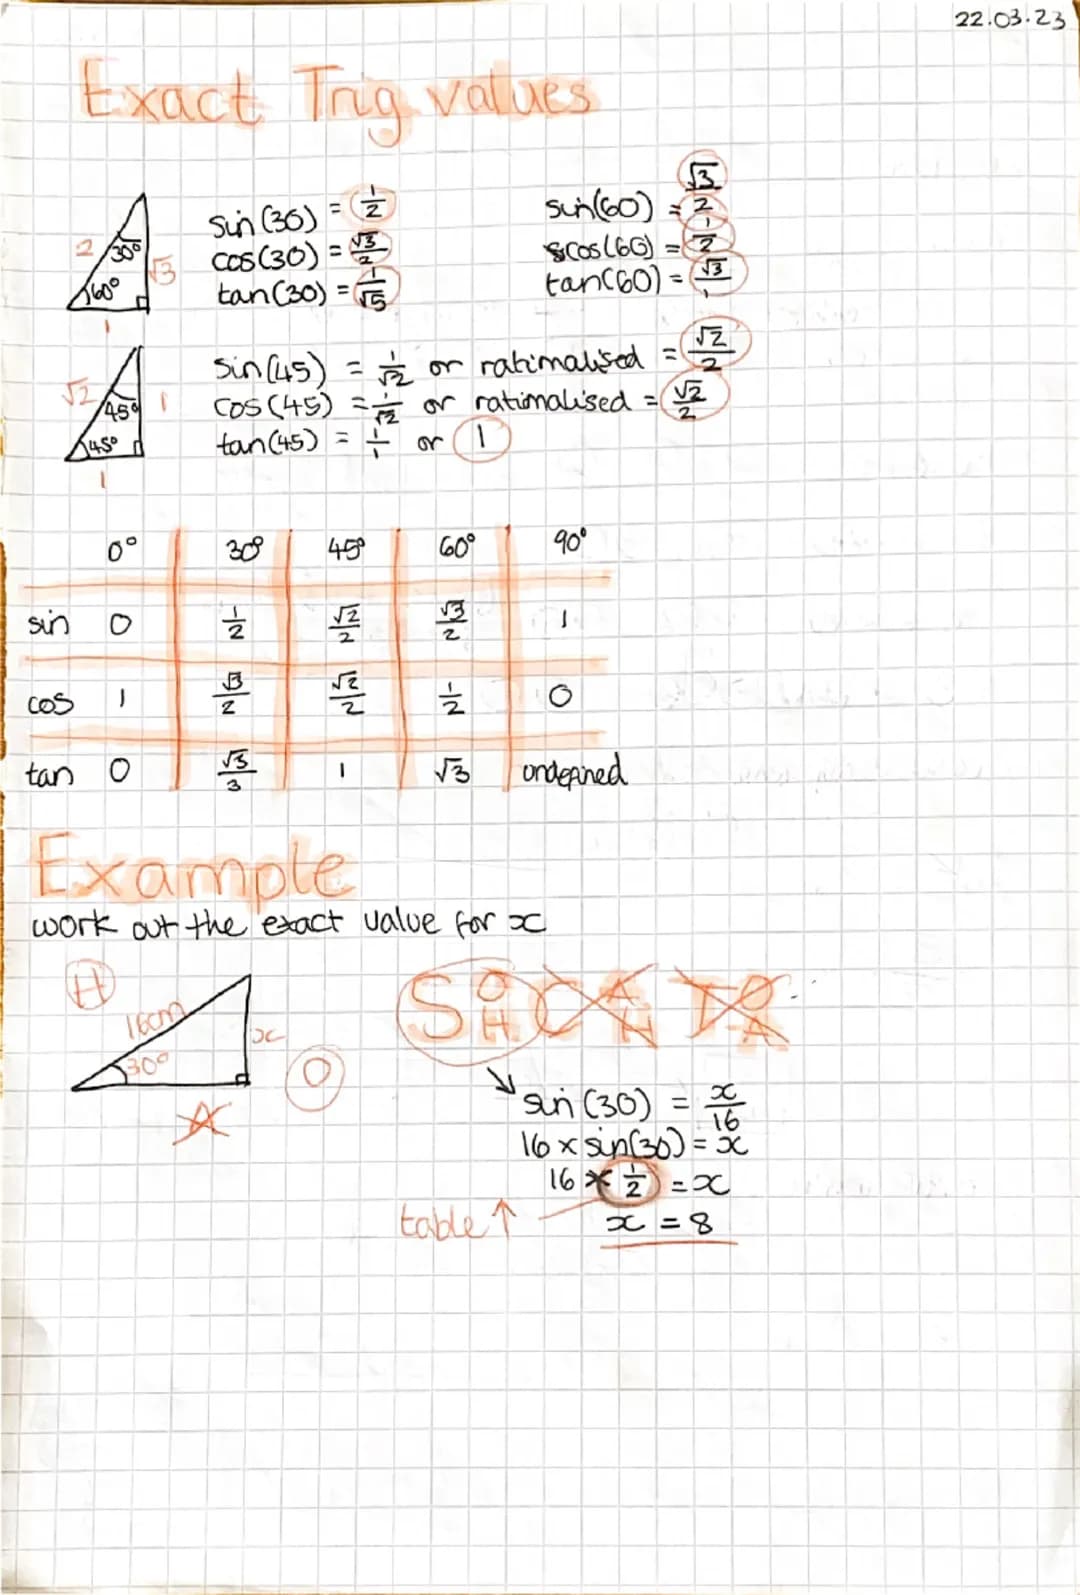 22.03.23
Exact Trig values
2 30° √3 60° 1
sin(30) = 1/2
cos(30) = √3/2
tan(30) = 1/√5
sin(60) = √3/2
cos(60) = 1/2
tan(60) = √3/1
√2 45° 1 45° 1
sin(45) = 1/√2 or ratimalised = √2/2
cos(45) = 1/√2 or ratimalised = √2/2
tan(45) = 1/1 or 1
0° 30° 45° 60° 90°
sin 0 1/2 √2/2 √3/2 1
cos 1 √3/2 √2/2 1/2 0
tan 0 √3/3 1 √3 undefined
Example
work out the exact value for x
H 16cm x 30° O A
SOH CAH TOA
sin(30) = x/16
16 x sin(30) = x
16 x 1/2 = x
table ↑ x = 8